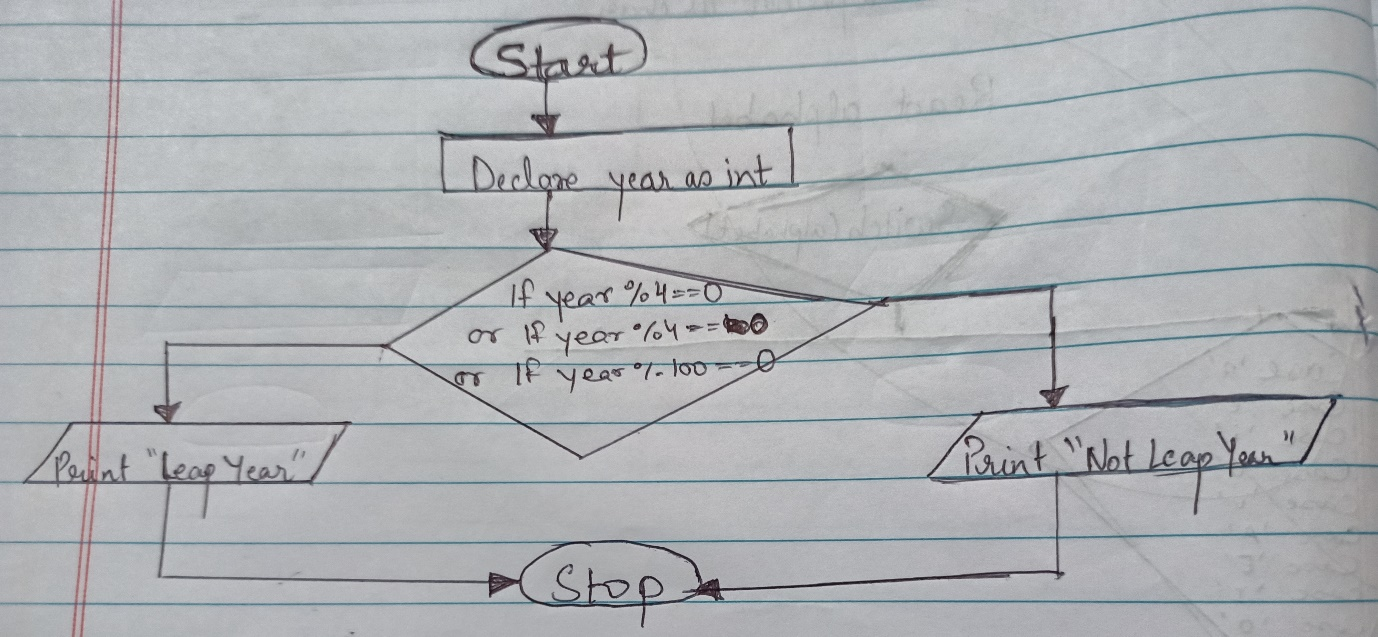 Start
Declare year as int
If year %4==0
or If year %4==0
or If year %100==0
Print "Leap Year"
Print "Not Leap Year"
Stop